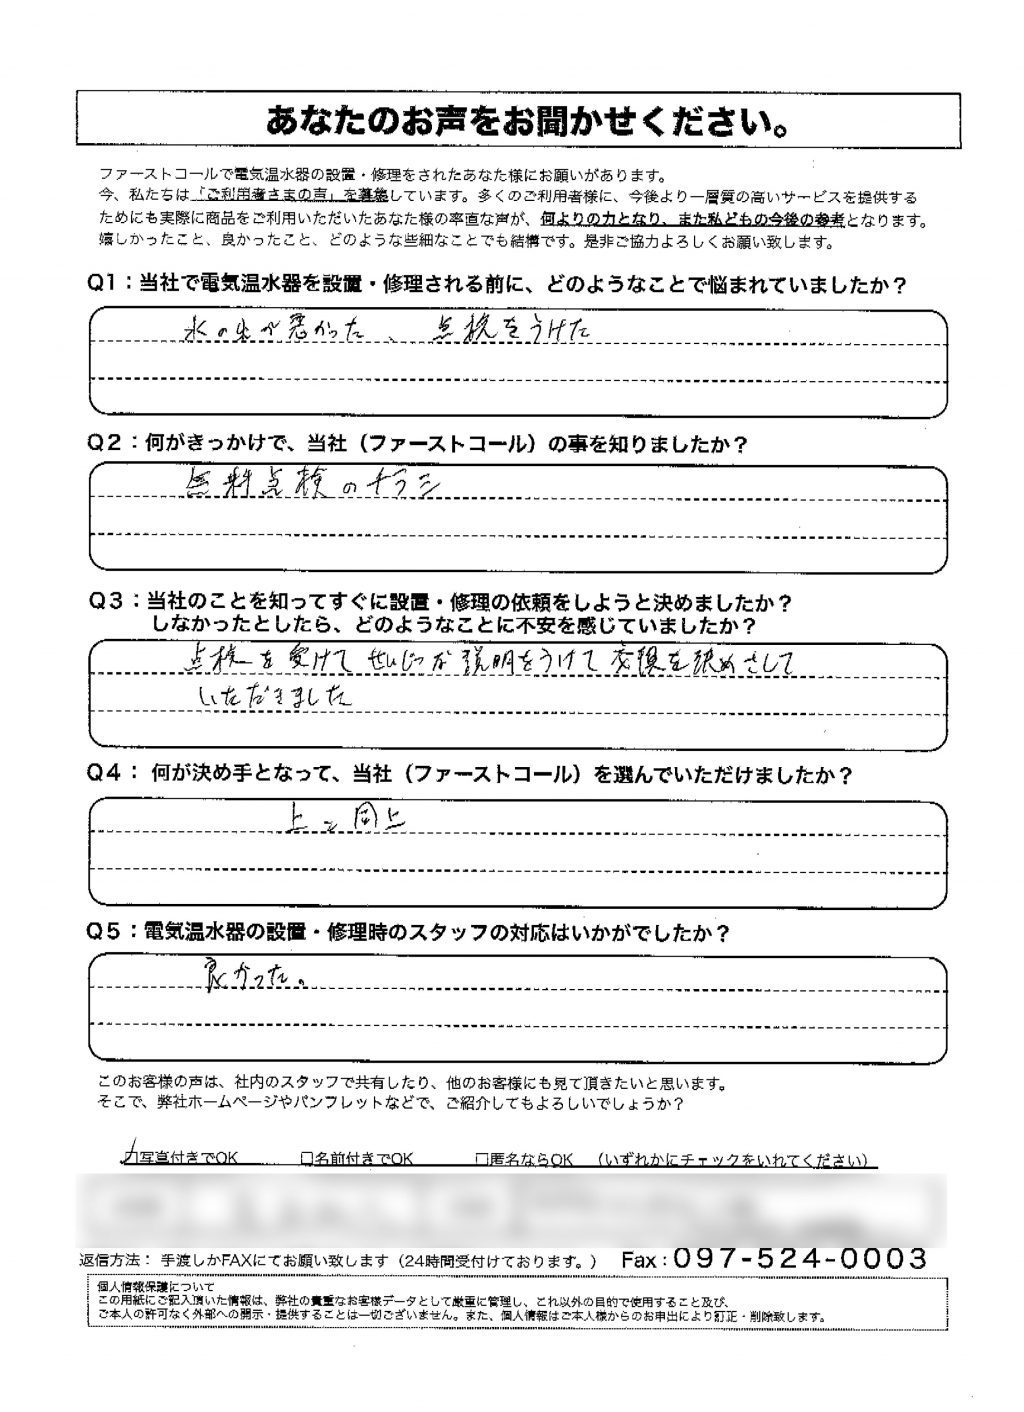 あなたのお声をお聞かせください。
ファーストコールで電気温水器の設置・修理をされたあなた様にお願いがあります。
今、私たちは「ご利用者さまの声」を募集しています。多くのご利用者様に、今後より一層質の高いサービスを提供する
ためにも実際に商品をご利用いただいたあなた様の率直な声が、何よりの力となり、また私どもの今後の参考となります。
嬉しかったこと、良かったこと、どのような些細なことでも結構です。是非ご協力よろしくお願い致します。
Q1：当社で電気温水器を設置・修理される前に、どのようなことで悩まれていましたか？
水の出が悪かった、点検をうけた
Q2：何がきっかけで、当社（ファーストコール）の事を知りましたか？
無料点検のチラシ
Q3：当社のことを知ってすぐに設置・修理の依頼をしようと決めましたか？
しなかったとしたら、どのようなことに不安を感じていましたか？
点検を受けてせいじつな説明をうけて交換を決めさして
いただきました
Q4： 何が決め手となって、当社（ファーストコール）を選んでいただけましたか？
上と同上
Q5：電気温水器の設置・修理時のスタッフの対応はいかがでしたか？
良かった。
このお客様の声は、社内のスタッフで共有したり、他のお客様にも見て頂きたいと思います。
そこで、弊社ホームページやパンフレットなどで、ご紹介してもよろしいでしょうか？
☑写真付きでOK □名前付きでOK □匿名ならOK （いずれかにチェックをいれてください）
返信方法： 手渡しかFAXにてお願い致します（24時間受付けております。） Fax：097-524-0003
個人情報保護について
この用紙にご記入頂いた情報は、弊社の貴重なお客様データとして厳重に管理し、これ以外の目的で使用すること及び、
ご本人の許可なく外部への開示・提供することは一切ございません。また、個人情報はご本人様からのお申出により訂正・削除致します。